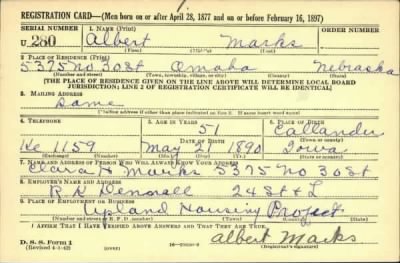 REGISTRATION CARD—(Men born on or after April 28, 1877 and on or before February 16, 1897)
SERIAL NUMBER 1. NAME (Print) ORDER NUMBER
U 280 Albert Marks
(First) (Middle) (Last)
2. PLACE OF RESIDENCE (Print)
5375 No 30 St Omaha Nebraska
(Number and street) (Town, township, village, or city) (County) (State)
[THE PLACE OF RESIDENCE GIVEN ON THE LINE ABOVE WILL DETERMINE LOCAL BOARD
JURISDICTION; LINE 2 OF REGISTRATION CERTIFICATE WILL BE IDENTICAL]
3. MAILING ADDRESS
Same
[Mailing address if other than place indicated on line 2. If same insert word same]
4. TELEPHONE 5. AGE IN YEARS 6. PLACE OF BIRTH
51 Callander
DATE OF BIRTH (Town or county)
Ke 1159 May 21 1890 Iowa
(Exchange) (Number) (Mo.) (Day) (Yr.) (State or country)
7. NAME AND ADDRESS OF PERSON WHO WILL ALWAYS KNOW YOUR ADDRESS
Clara H Marks 5375 No 30 St
8. EMPLOYER'S NAME AND ADDRESS
24 St & L
9. PLACE OF EMPLOYMENT OR BUSINESS
Upland Housing Project
(Number and street or R. F. D. number) (Town) (County) (State)
I AFFIRM THAT I HAVE VERIFIED ABOVE ANSWERS AND THAT THEY ARE TRUE.
D. S. S. Form 1
(Revised 4-1-42) (over) Albert Marks
(Registrant's signature)